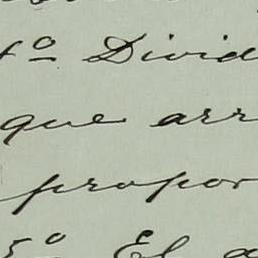 4º Divid
que arr
propor
5º El a